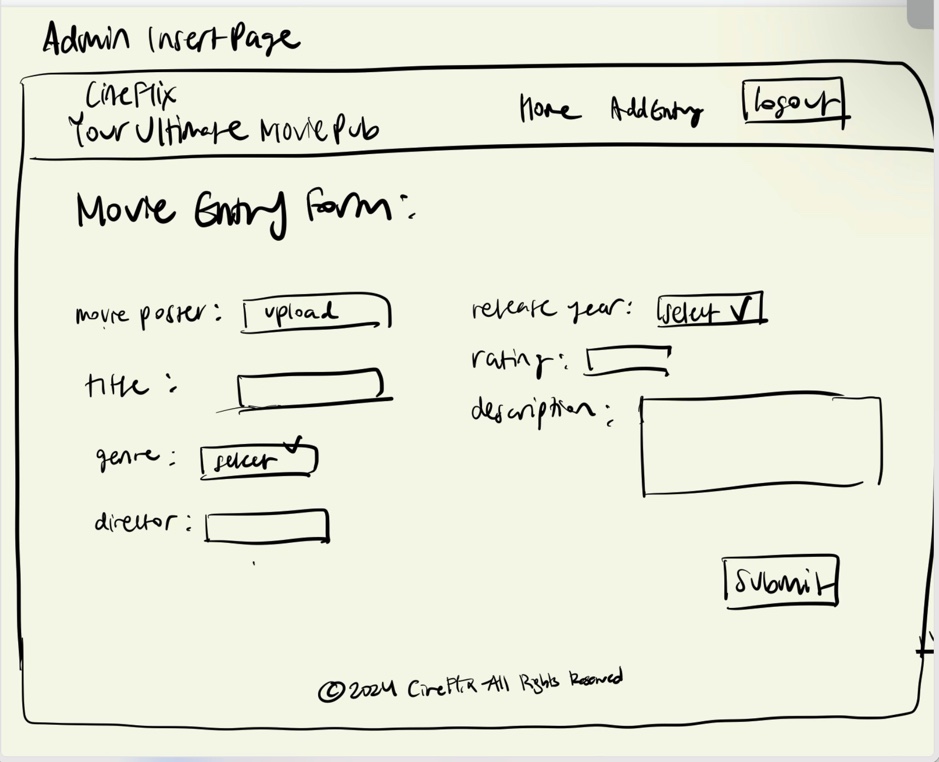 Admin Insert Page
CineFlix
Your Ultimate Movie Pub
Home AddEntry logout
Movie Entry Form:
movie poster: upload
title:
genre: select
director:
release year: select
rating:
description:
Submit
©2024 CineFlix All Rights Reserved